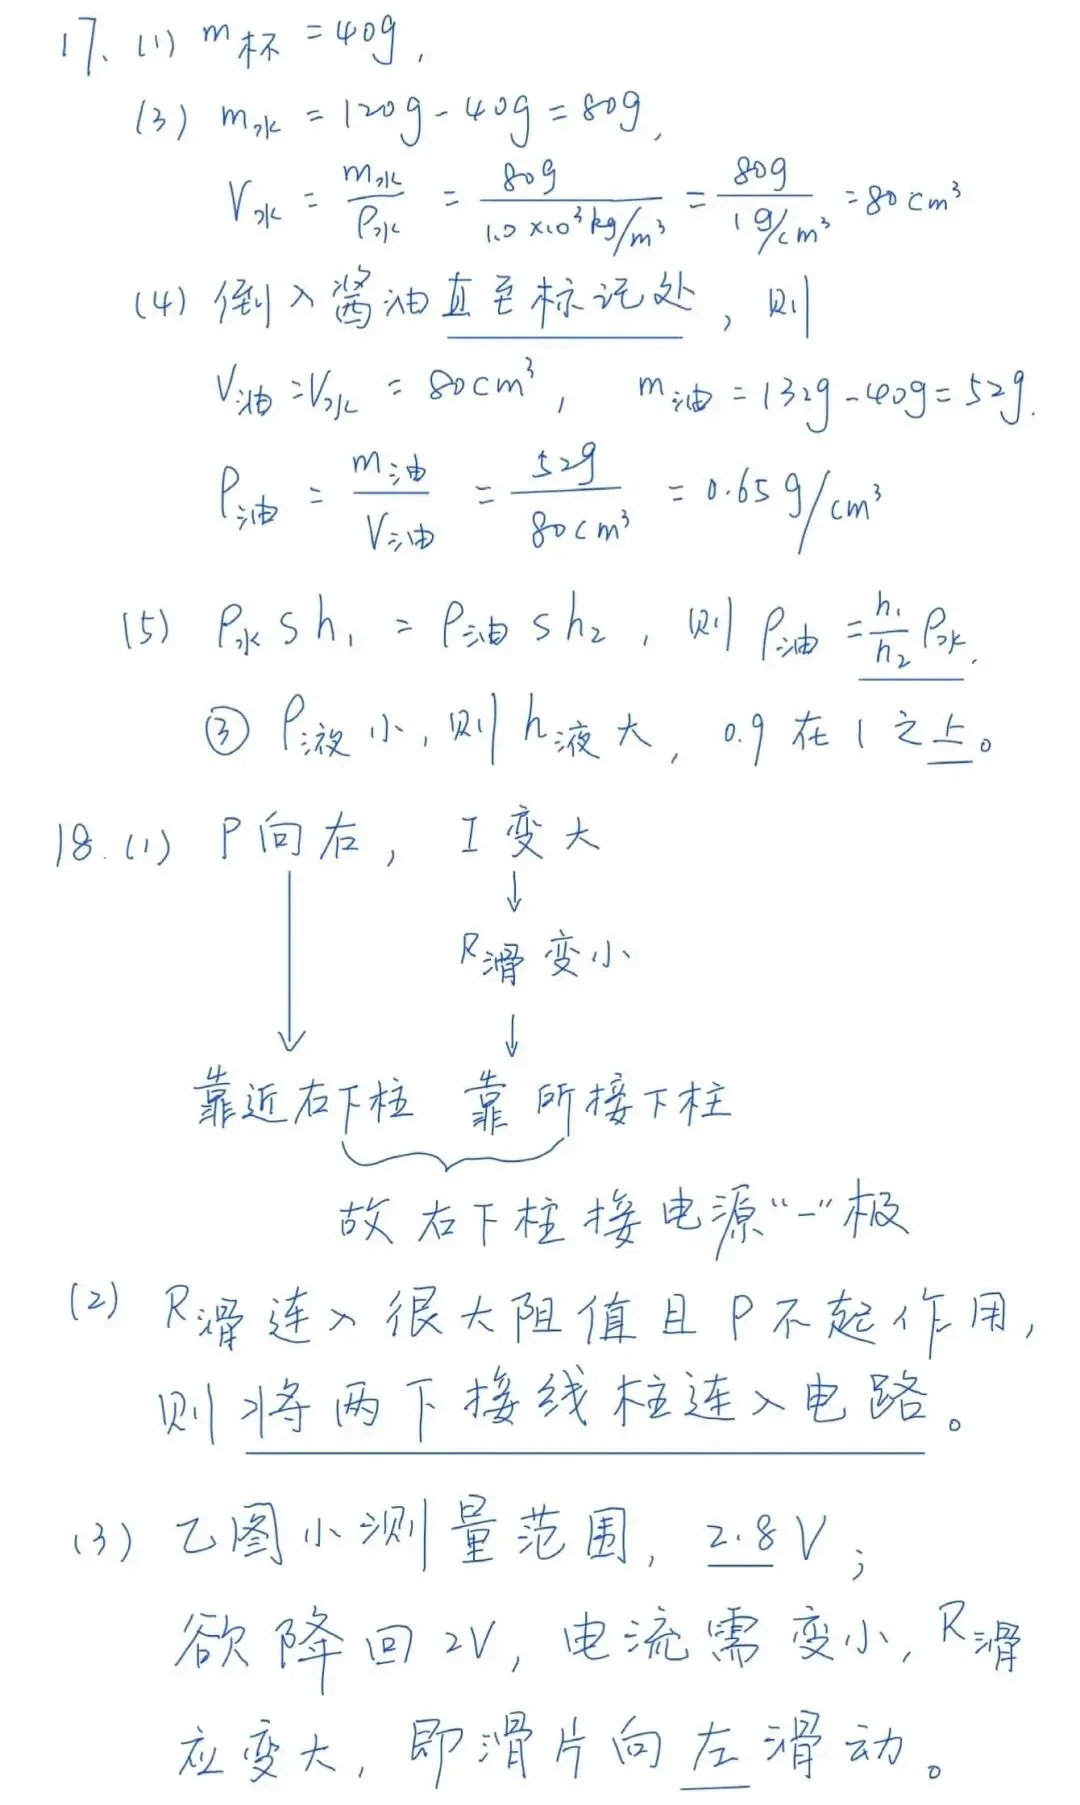 17. (1) m杯 = 40g,
(3) m水 = 120g - 40g = 80g,
V水 = m水/ρ水 = 80g/1.0×10³kg/m³ = 80g/1g/cm³ = 80cm³
(4) 倒入酱油直至标记处，则
V油 = V水 = 80cm³, m油 = 132g - 40g = 52g.
ρ油 = m油/V油 = 52g/80cm³ = 0.65g/cm³
(5) ρ水sh₁ = ρ油sh₂, 则 ρ油 = h₁/h₂ ρ水.
③ ρ液小, 则h液大, 0.9在1之上。
18. (1) P向右, I变大
↓
R滑变小
↓ ↓
靠近右下柱 靠所接下柱
故右下柱接电源“-”极
(2) R滑连入很大阻值且P不起作用,
则将两下接线柱连入电路。
(3) 乙图小测量范围, 2.8V;
欲降回2V, 电流需变小, R滑
应变大, 即滑片向左滑动。